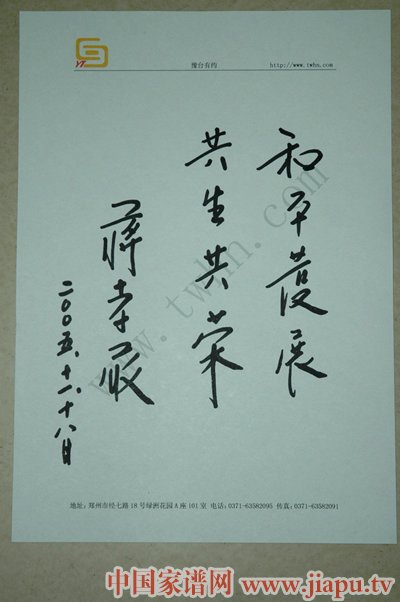 YT
豫台有约 http://www.twhn.com
和平發展
共生共荣
蔣孝嚴
二〇〇五、十一、十八日
www.twhn.com
地址：郑州市经七路18号绿洲花园A座101室 电话：0371-63582095 传真：0371-63582091
中国家谱网 www.jiapu.tv